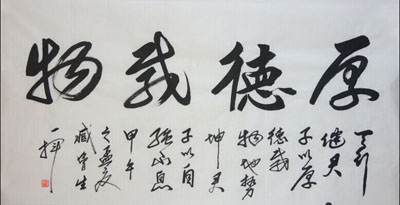 厚德载物
天行
健君
子以厚
德载
物地势
坤君
子以自
强不息
甲午
之孟夏
生
一挥